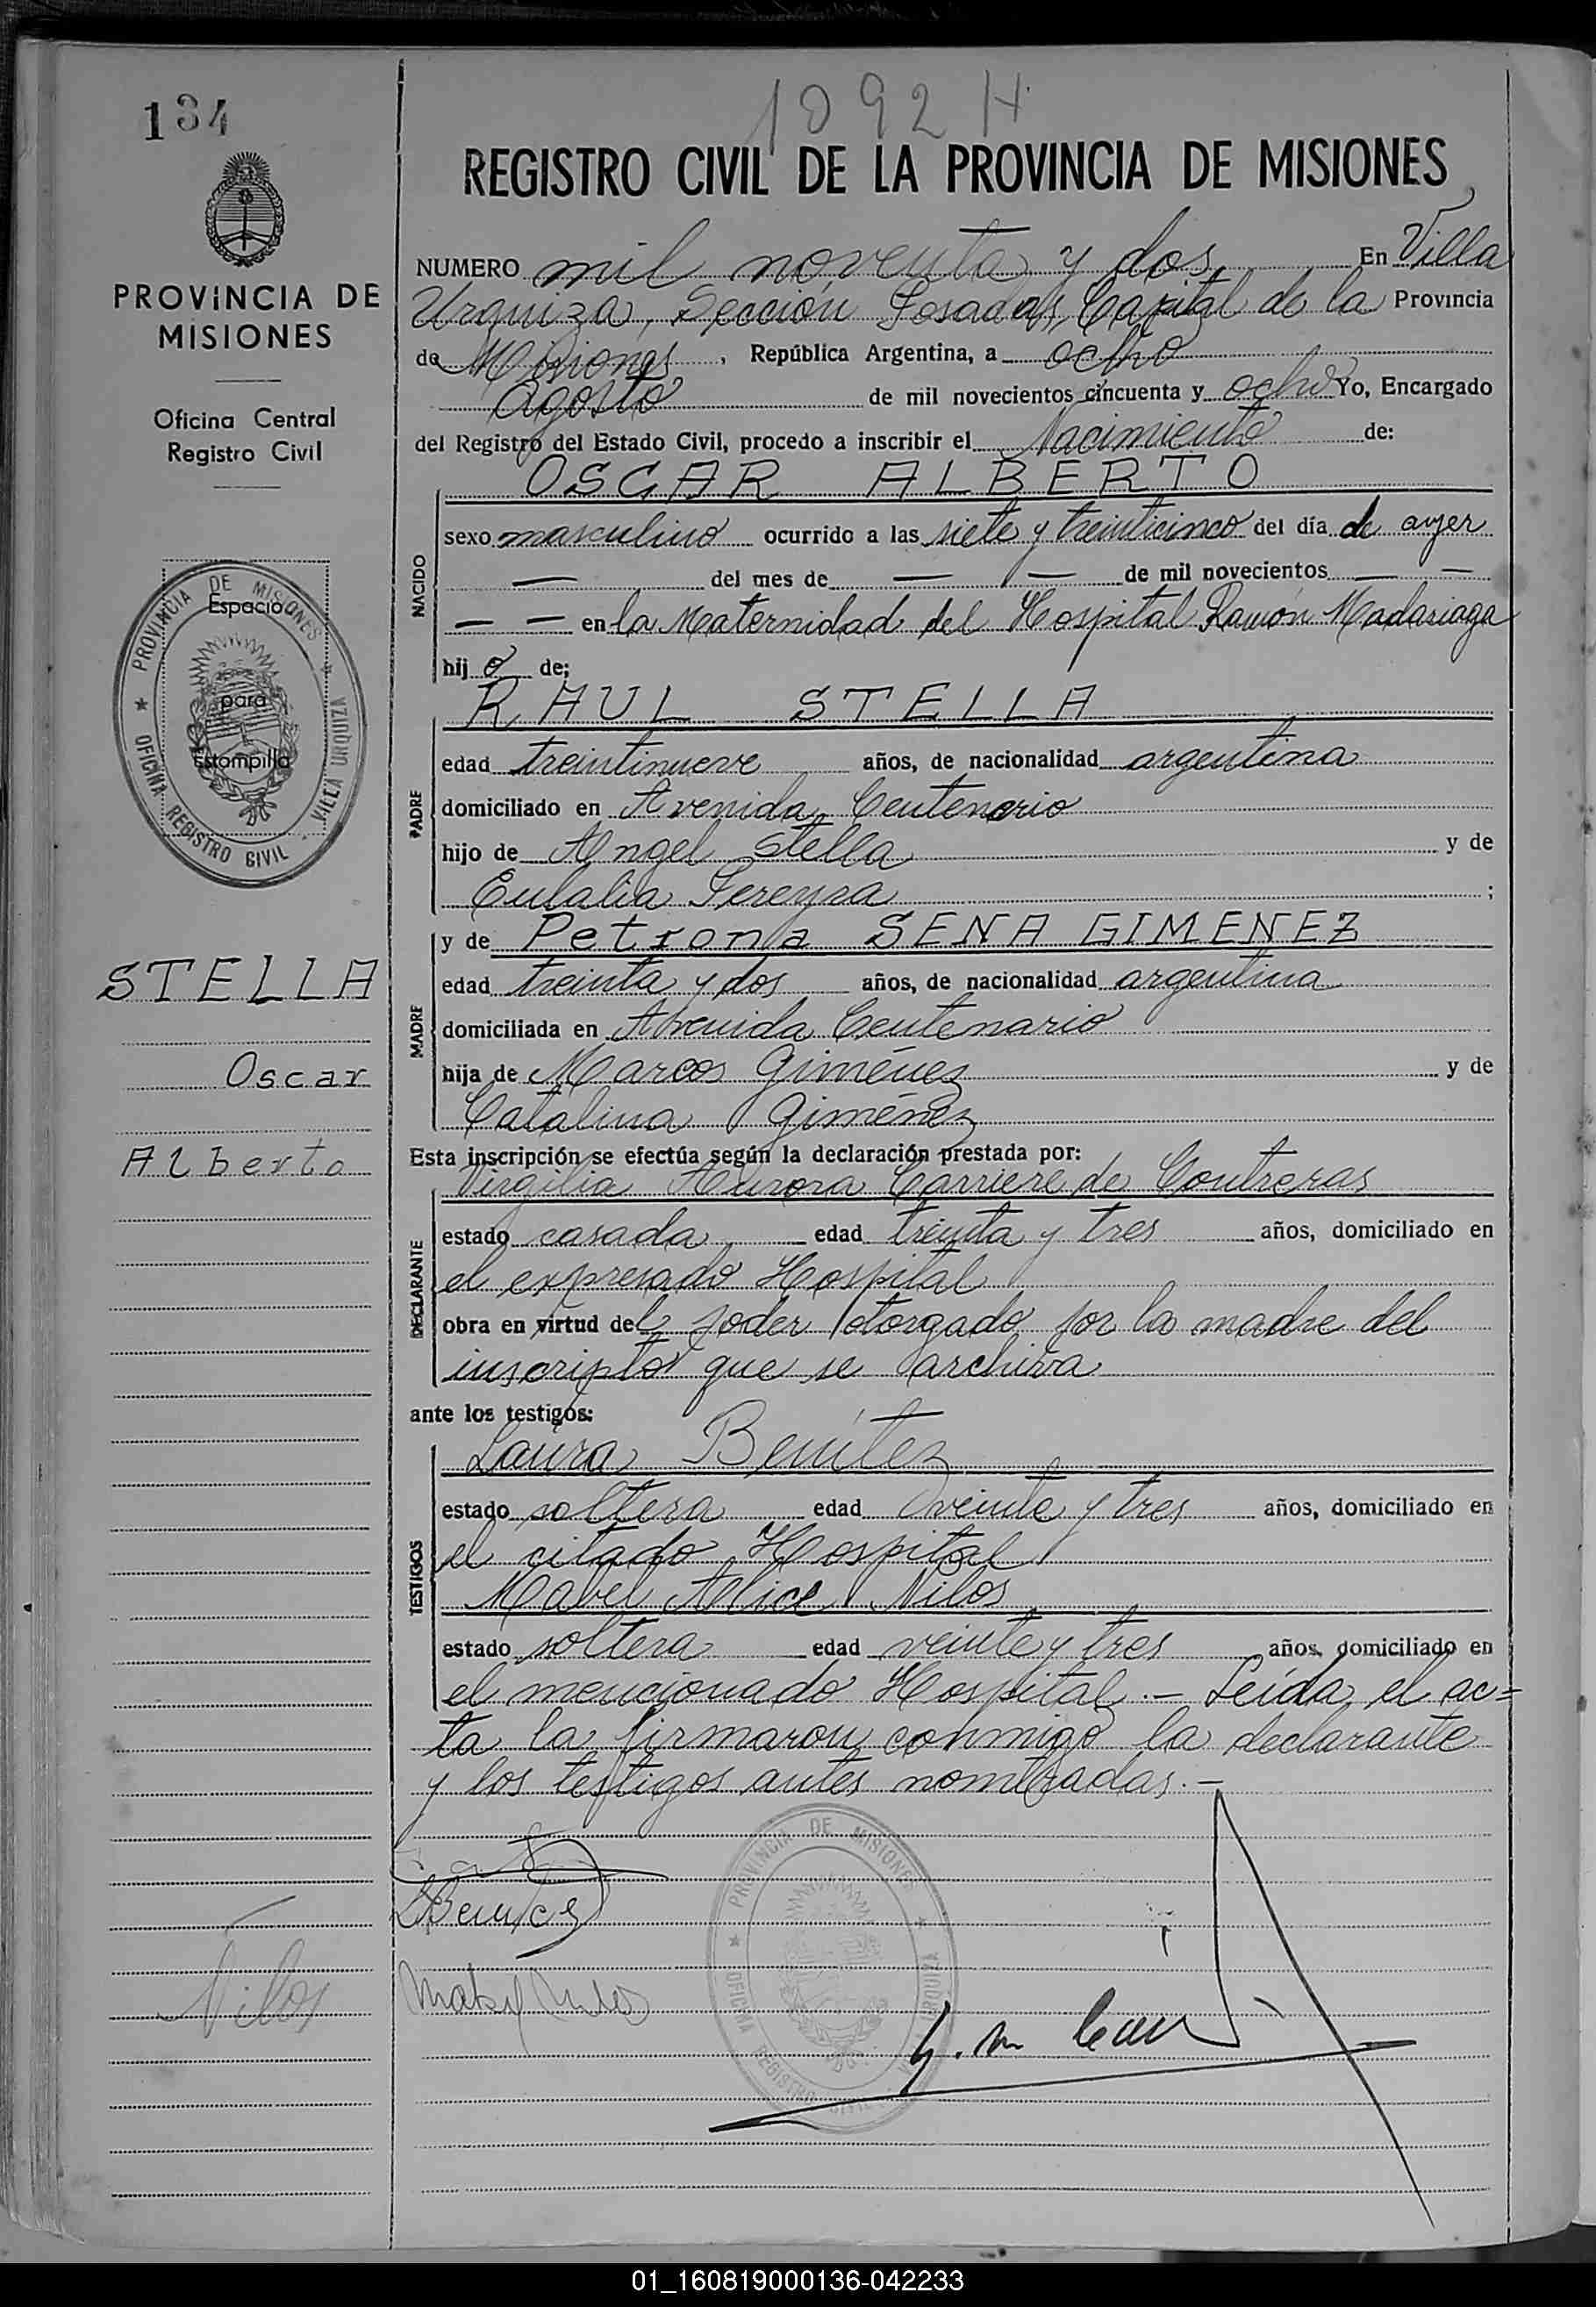 134
1092 H
REGISTRO CIVIL DE LA PROVINCIA DE MISIONES
PROVINCIA DE
MISIONES
Oficina Central
Registro Civil
PROVINCIA DE MISIONES
Espacio
para
Estampilla
OFICINA REGISTRO CIVIL - VILLA URQUIZA
STELLA
Oscar
Alberto
Nilos
NUMERO mil noventa y dos En Villa
Urquiza, Sección Posadas, Capital de la Provincia
de Misiones, República Argentina, a ocho
Agosto de mil novecientos cincuenta y ocho Yo, Encargado
del Registro del Estado Civil, procedo a inscribir el Nacimiento de:
OSCAR ALBERTO
NACIDO
sexo masculino ocurrido a las siete y treinticinco del día de ayer
— del mes de — — de mil novecientos — —
— — en la Maternidad del Hospital Ramón Madariaga
hijo de;
RAUL STELLA
PADRE
edad treintinueve años, de nacionalidad argentina
domiciliado en Avenida Centenario
hijo de Angel Stella y de
Eulalia Pereyra ;
y de Petrona SENA GIMENEZ
MADRE
edad treinta y dos años, de nacionalidad argentina
domiciliada en Avenida Centenario
hija de Marcos Giménez y de
Catalina Giménez
Esta inscripción se efectúa según la declaración prestada por:
Virgilia Aurora Carriere de Contreras
DECLARANTE
estado casada, edad treinta y tres años, domiciliado en
el expresado Hospital
obra en virtud del poder otorgado por la madre del
inscripto que se archiva
ante los testigos:
Laura Benítez
TESTIGOS
estado soltera edad veinte y tres años, domiciliado en
el citado Hospital
Mabel Alice Nilos
estado soltera edad veinte y tres años, domiciliado en
el mencionado Hospital.- Leída el ac=
ta la firmaron conmigo la declarante
y los testigos antes nombradas.-
LBenitez
Mabel Nilos
PROVINCIA DE MISIONES
OFICINA REGISTRO CIVIL URQUIZA
01_160819000136-042233